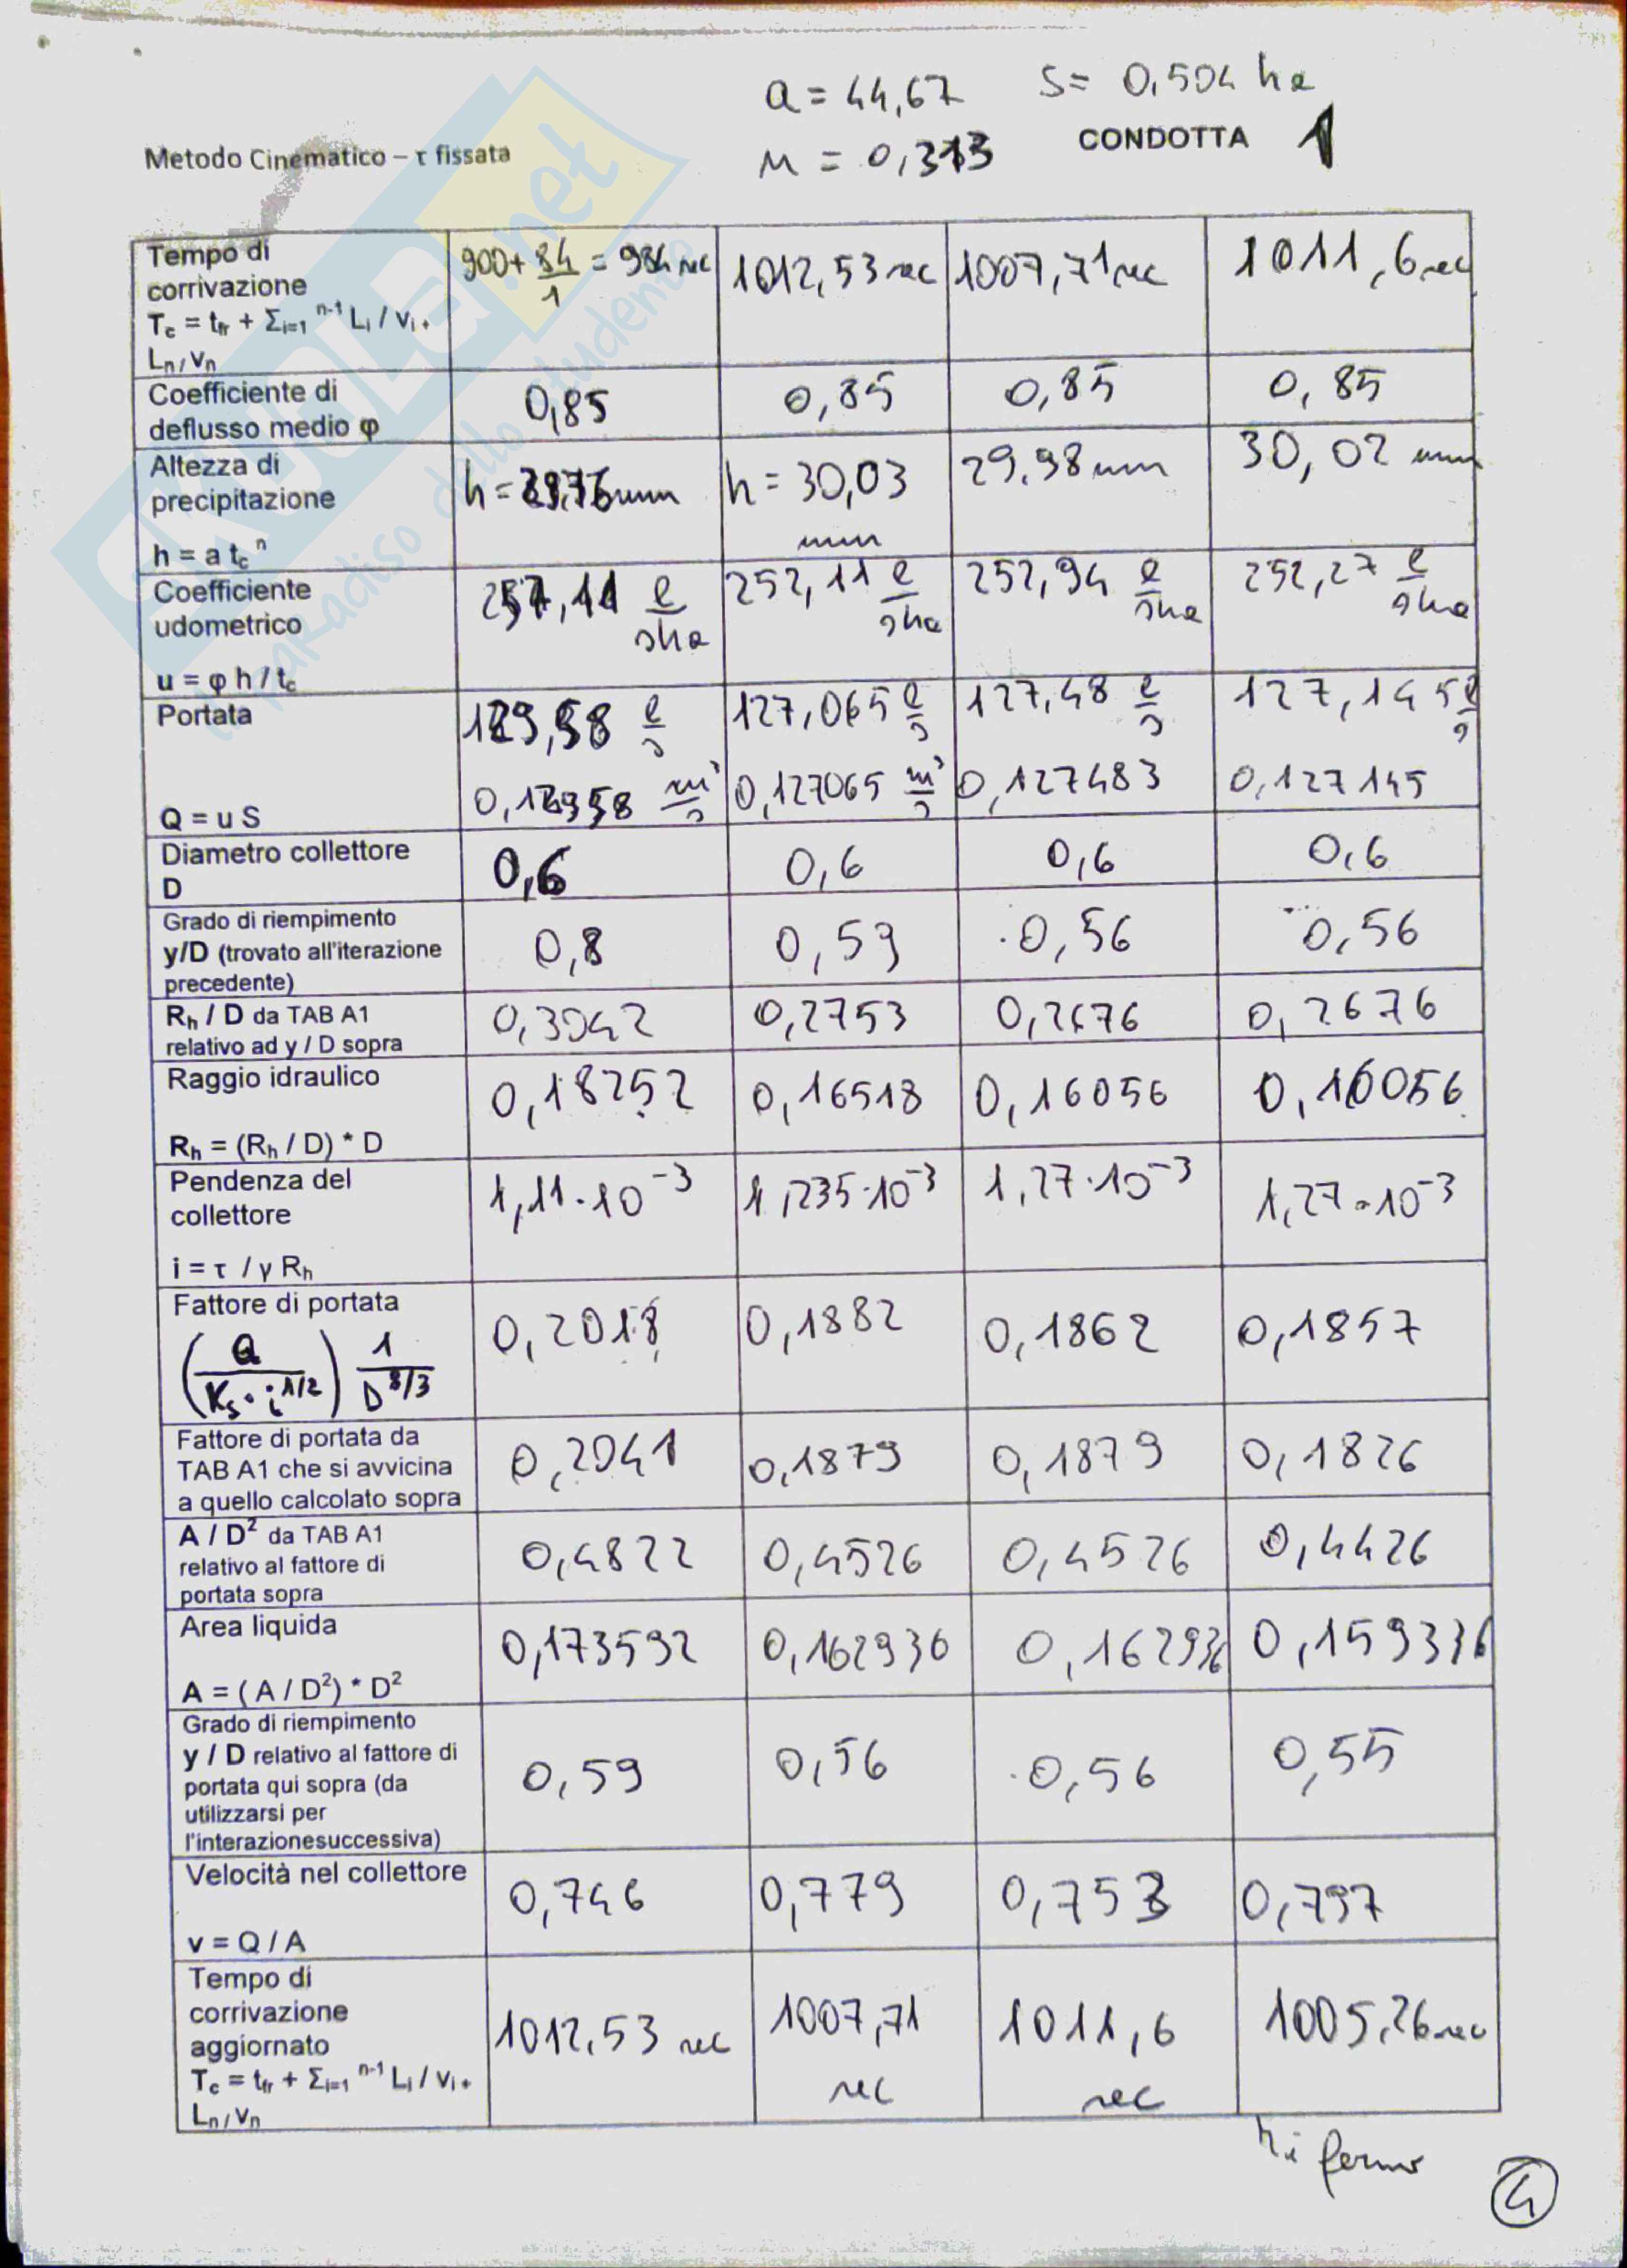 a = 44,67 S= 0,504 ha
Metodo Cinematico – τ fissata
n = 0,313 CONDOTTA 1
SKUOLA.net
paradiso dello studente
Tempo di
corrivazione
Tc = tfr + Σi=1 n-1 Li / vi +
Ln / vn
900+ 84/1 = 984 sec 1012,53 sec 1007,71 sec 1011,6 sec
Coefficiente di
deflusso medio φ
0,85 0,85 0,85 0,85
Altezza di
precipitazione
h = a tc n
h = 29,76 mm h = 30,03 mm 29,98 mm 30,02 mm
Coefficiente
udometrico
u = φ h / tc
257,11 l/sha 252,11 l/sha 252,94 l/sha 252,27 l/sha
Portata
129,58 l/s 127,065 l/s 127,48 l/s 127,145 l/s
0,12958 m³/s 0,127065 m³/s 0,127483 0,127145
Q = u S
Diametro collettore
D
0,6 0,6 0,6 0,6
Grado di riempimento
y/D (trovato all'iterazione
precedente)
0,8 0,59 0,56 0,56
Rh / D da TAB A1
relativo ad y / D sopra
0,3042 0,2753 0,2676 0,2676
Raggio idraulico
Rh = (Rh / D) * D
0,18252 0,16518 0,16056 0,16056
Pendenza del
collettore
i = τ / γ Rh
1,11·10⁻³ 1,235·10⁻³ 1,27·10⁻³ 1,27·10⁻³
Fattore di portata
(Q / Ks · i^1/2) 1 / D^8/3
0,2018 0,1882 0,1862 0,1857
Fattore di portata da
TAB A1 che si avvicina
a quello calcolato sopra
0,2041 0,1879 0,1879 0,1826
A / D² da TAB A1
relativo al fattore di
portata sopra
0,4822 0,4526 0,4526 0,4426
Area liquida
A = ( A / D²) * D²
0,173592 0,162936 0,162936 0,159336
Grado di riempimento
y / D relativo al fattore di
portata qui sopra (da
utilizzarsi per
l'interazionesuccessiva)
0,59 0,56 0,56 0,55
Velocità nel collettore
v = Q / A
0,746 0,779 0,753 0,797
Tempo di
corrivazione
aggiornato
Tc = tfr + Σi=1 n-1 Li / vi +
Ln / vn
1012,53 sec 1007,71 sec 1011,6 sec 1005,26 sec
Mi fermo
4